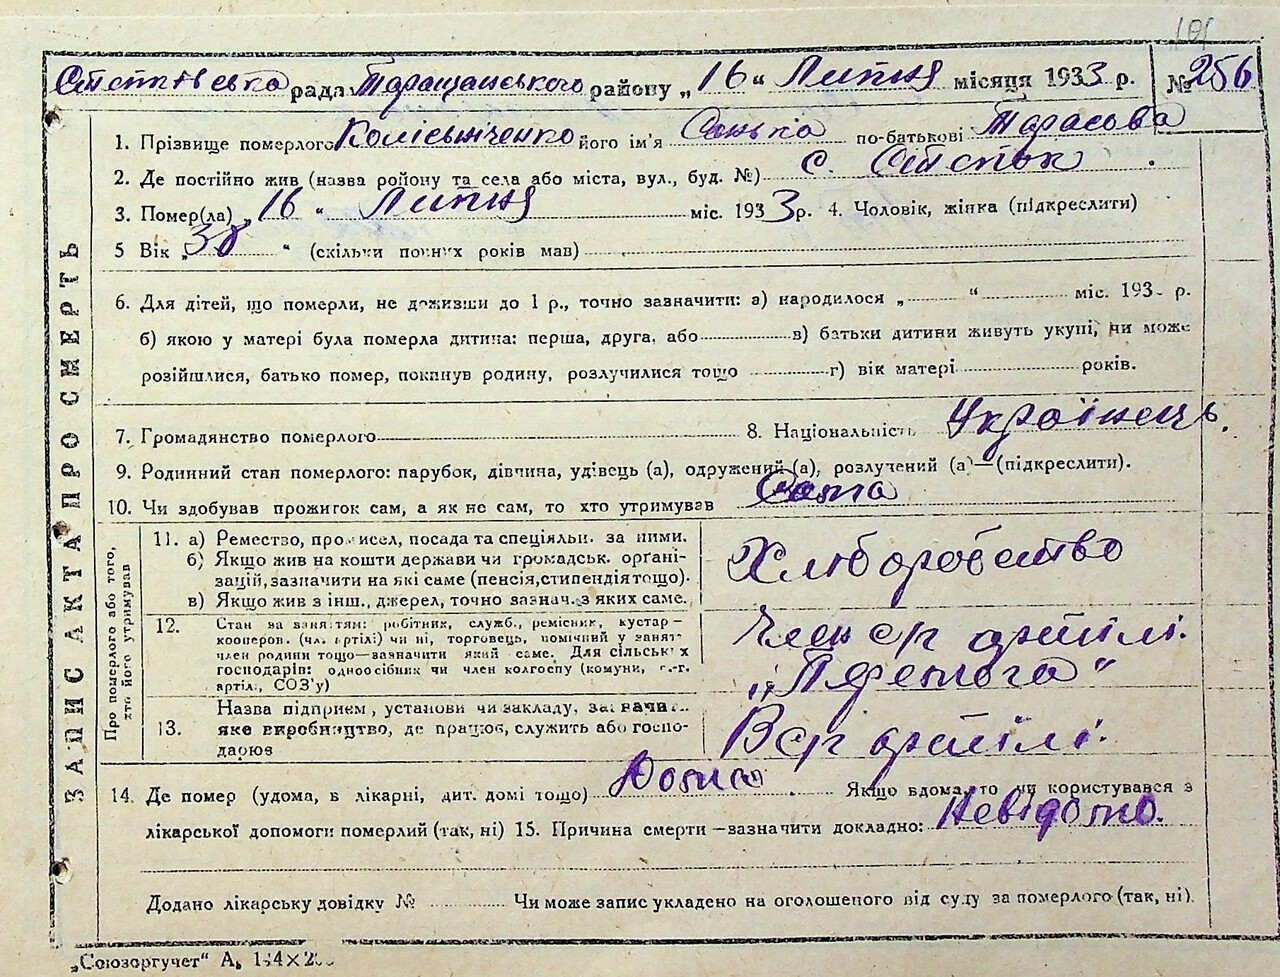 191
Степківська рада Таращанського району „16“ Липня місяця 1933 р. № 256
ЗАПИС АКТА ПРО СМЕРТЬ
1. Прізвище померлого Колісьніченко його ім'я Санька по-батькові Тарасова
2. Де постійно жив (назва ройону та села або міста, вул., буд. №) с. Степок.
3. Помер(ла) „16“ Липня міс. 1933 р. 4. Чоловік, жінка (підкреслити)
5 Вік „38“ (скільки повних років мав)
6. Для дітей, що померли, не доживши до 1 р., точно зазначити: а) народилося „ “ міс. 193 р.
б) якою у матері була померла дитина: перша, друга, або в) батьки дитини живуть укупі, чи може
розійшлися, батько помер, покинув родину, розлучилися тощо г) вік матері років.
7. Громадянство померлого 8. Національність Українець.
9. Родинний стан померлого: парубок, дівчина, удівець (а), одружений (а), розлучений (а)—(підкреслити).
10. Чи здобував прожиток сам, а як не сам, то хто утримував Сама
Про померлого або того,
хто його утримував
11. а) Ремество, промисел, посада та спеціяльн. за ними.
б) Якщо жив на кошти держави чи громадськ. органі-
зацій, зазначити на які саме (пенсія, стипендія тощо).
в) Якщо жив з інш., джерел, точно зазнач. з яких саме.
Хліборобство
12. Стан за заняттям: робітник, служб., ремісник, кустар—
кооперов. (чл. артілі) чи ні, торговець, помічний у занят-
член родини тощо—зазначити який саме. Для сільськ х
господарів: одноосібник чи член колгоспу (комуни, с.-г.
артілі, СОЗ'у)
Член с/г артілі.
„Перемога“
13. Назва підприєм, установи чи закладу, зазначити..
яке виробництво, де працює, служить або госпо-
дарює
В с/г артілі.
14. Де помер (удома, в лікарні, дит. домі тощо) Дома. Якщо вдома, то чи користувався з
лікарської допомоги померлий (так, ні) 15. Причина смерти—зазначити докладно: Невідомо.
Додано лікарську довідку № Чи може запис укладено на оголошеного від суду за померлого (так, ні).
„Союзоргучет“ А